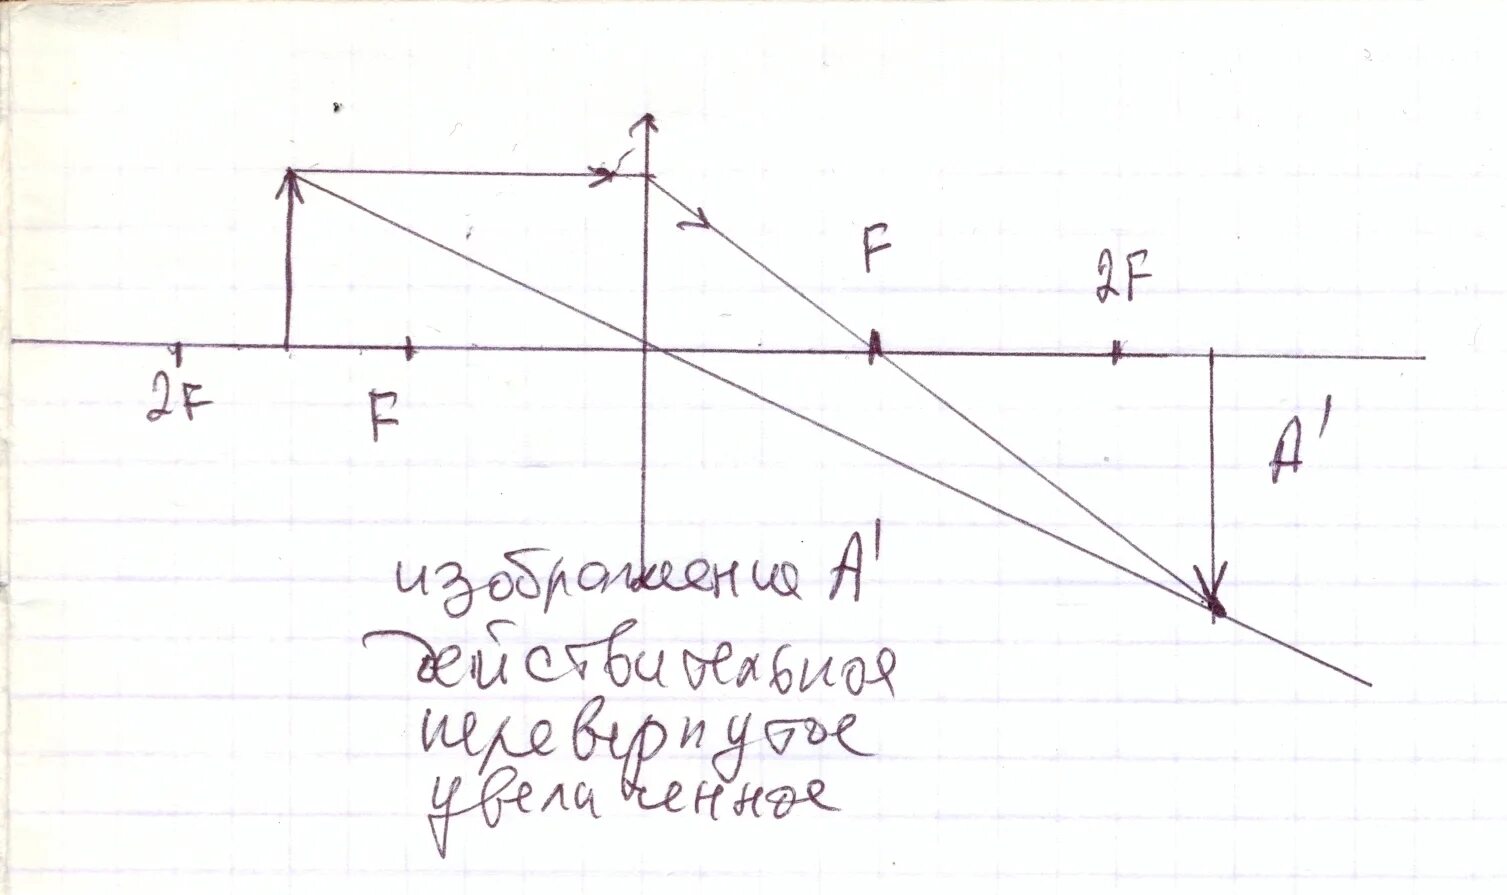 F
2F
2F
F
A'
изображение A'
действительное
перевернутое
увеличенное